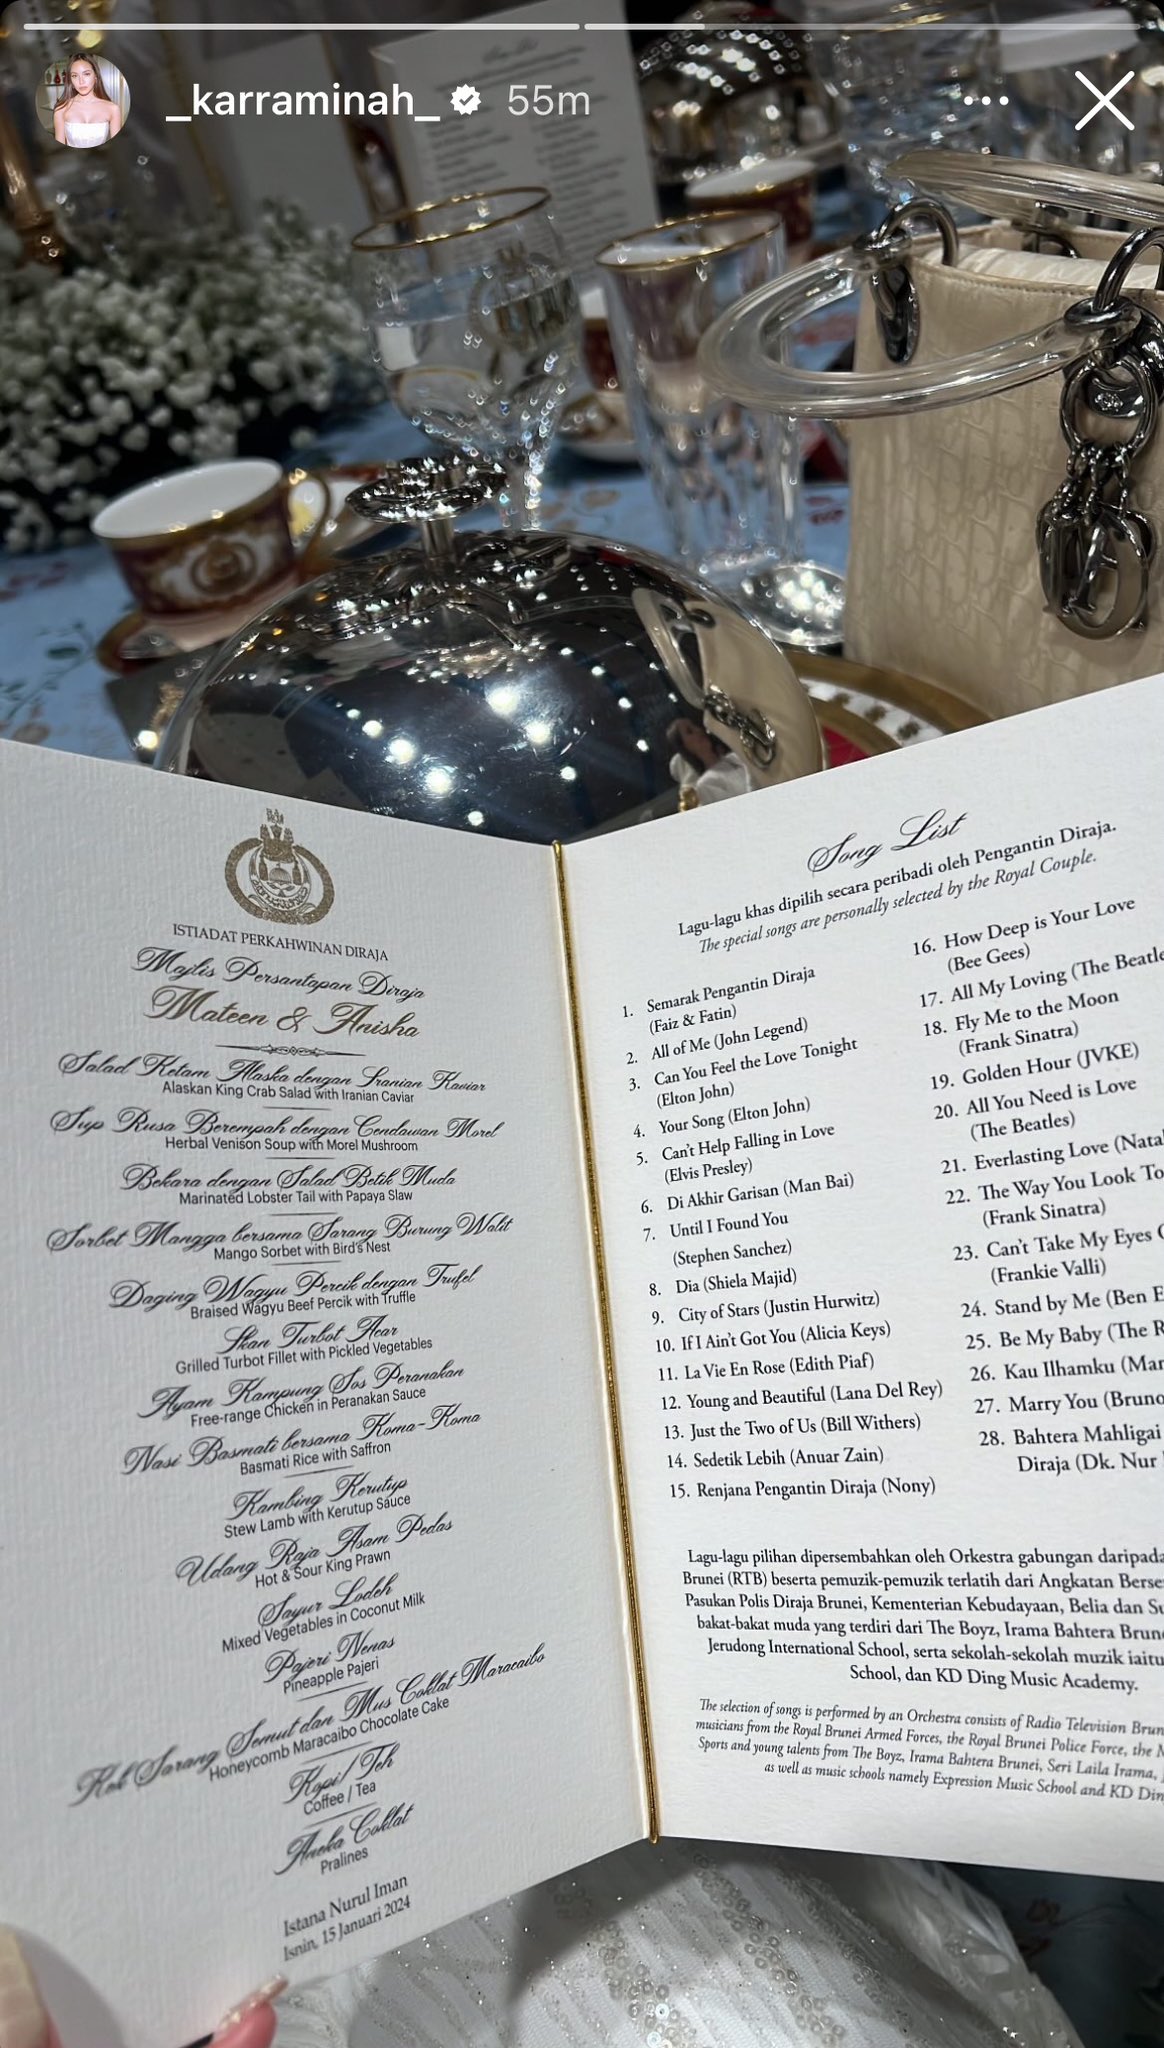 _karraminah_ 55m
ISTIADAT PERKAHWINAN DIRAJA
Majlis Persantapan Diraja
Mateen & Anisha
Salad Ketam Alaska dengan Iranian Kaviar
Alaskan King Crab Salad with Iranian Caviar
Sup Rusa Berempah dengan Cendawan Morel
Herbal Venison Soup with Morel Mushroom
Bekara dengan Salad Betik Muda
Marinated Lobster Tail with Papaya Slaw
Sorbet Mangga bersama Sarang Burung Walit
Mango Sorbet with Bird's Nest
Daging Wagyu Percik dengan Trufel
Braised Wagyu Beef Percik with Truffle
Ikan Turbot Acar
Grilled Turbot Fillet with Pickled Vegetables
Ayam Kampung Sos Peranakan
Free-range Chicken in Peranakan Sauce
Nasi Basmati bersama Koma-Koma
Basmati Rice with Saffron
Kambing Kerutup
Stew Lamb with Kerutup Sauce
Udang Raja Asam Pedas
Hot & Sour King Prawn
Sayur Lodeh
Mixed Vegetables in Coconut Milk
Pajeri Nenas
Pineapple Pajeri
Kek Sarang Semut dan Mus Coklat Maracaibo
Honeycomb Maracaibo Chocolate Cake
Kopi / Teh
Coffee / Tea
Aneka Coklat
Pralines
Istana Nurul Iman
Isnin, 15 Januari 2024
Song List
Lagu-lagu khas dipilih secara peribadi oleh Pengantin Diraja.
The special songs are personally selected by the Royal Couple.
1. Semarak Pengantin Diraja
(Faiz & Fatin)
2. All of Me (John Legend)
3. Can You Feel the Love Tonight
(Elton John)
4. Your Song (Elton John)
5. Can't Help Falling in Love
(Elvis Presley)
6. Di Akhir Garisan (Man Bai)
7. Until I Found You
(Stephen Sanchez)
8. Dia (Shiela Majid)
9. City of Stars (Justin Hurwitz)
10. If I Ain't Got You (Alicia Keys)
11. La Vie En Rose (Edith Piaf)
12. Young and Beautiful (Lana Del Rey)
13. Just the Two of Us (Bill Withers)
14. Sedetik Lebih (Anuar Zain)
15. Renjana Pengantin Diraja (Nony)
16. How Deep is Your Love
(Bee Gees)
17. All My Loving (The Beatle
18. Fly Me to the Moon
(Frank Sinatra)
19. Golden Hour (JVKE)
20. All You Need is Love
(The Beatles)
21. Everlasting Love (Nata
22. The Way You Look To
(Frank Sinatra)
23. Can't Take My Eyes
(Frankie Valli)
24. Stand by Me (Ben E
25. Be My Baby (The R
26. Kau Ilhamku (Man
27. Marry You (Bruno
28. Bahtera Mahligai
Diraja (Dk. Nur
Lagu-lagu pilihan dipersembahkan oleh Orkestra gabungan daripada
Brunei (RTB) beserta pemuzik-pemuzik terlatih dari Angkatan Berse
Pasukan Polis Diraja Brunei, Kementerian Kebudayaan, Belia dan Su
bakat-bakat muda yang terdiri dari The Boyz, Irama Bahtera Brun
Jerudong International School, serta sekolah-sekolah muzik iaitu
School, dan KD Ding Music Academy.
The selection of songs is performed by an Orchestra consists of Radio Television Brun
musicians from the Royal Brunei Armed Forces, the Royal Brunei Police Force, the M
Sports and young talents from The Boyz, Irama Bahtera Brunei, Seri Laila Irama,
as well as music schools namely Expression Music School and KD Din